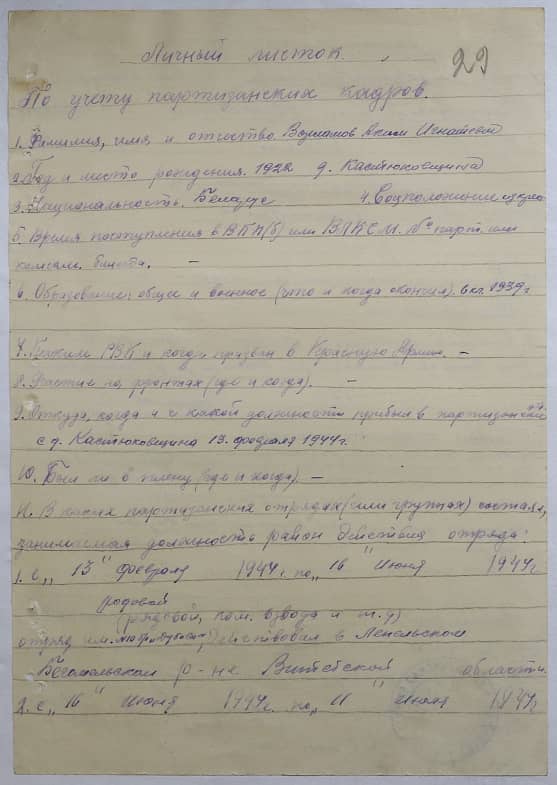 Личный листок.
29
По учету партизанских кадров.
1. Фамилия, имя и отчество
2. Год и место рождения. 1922 д. Кастюковщина
3. Национальность. Беларус 4. Соцположение
5. Время поступления в ВКП(б) или ВЛКСМ. № парт. или
комсом. билета. –
6. Образование: общее и военное (что и когда окончил). 6 кл. 1939 г
7. Каким РВК и когда призван в Красную Армию. –
8. Участие на фронтах (где и когда). –
9. Откуда, когда и с какой должности прибыл в
с д. Кастюковщина 13. февраля 1944 г.
10. Был ли в плену (где и когда). –
11. В каких партизанских отрядах (или группах) состоял,
занимаемая должность район действия отряда:
1. с „13" февраля 1944 г. по „16" июня 1944 г
рядовой
(рядовой, ком. взвода и т.д)
отряд им. действовал в Лепельском
Бегомльском р-не Витебской области.
2. с „16" июня 1944 г. по „11" июля 1944 г